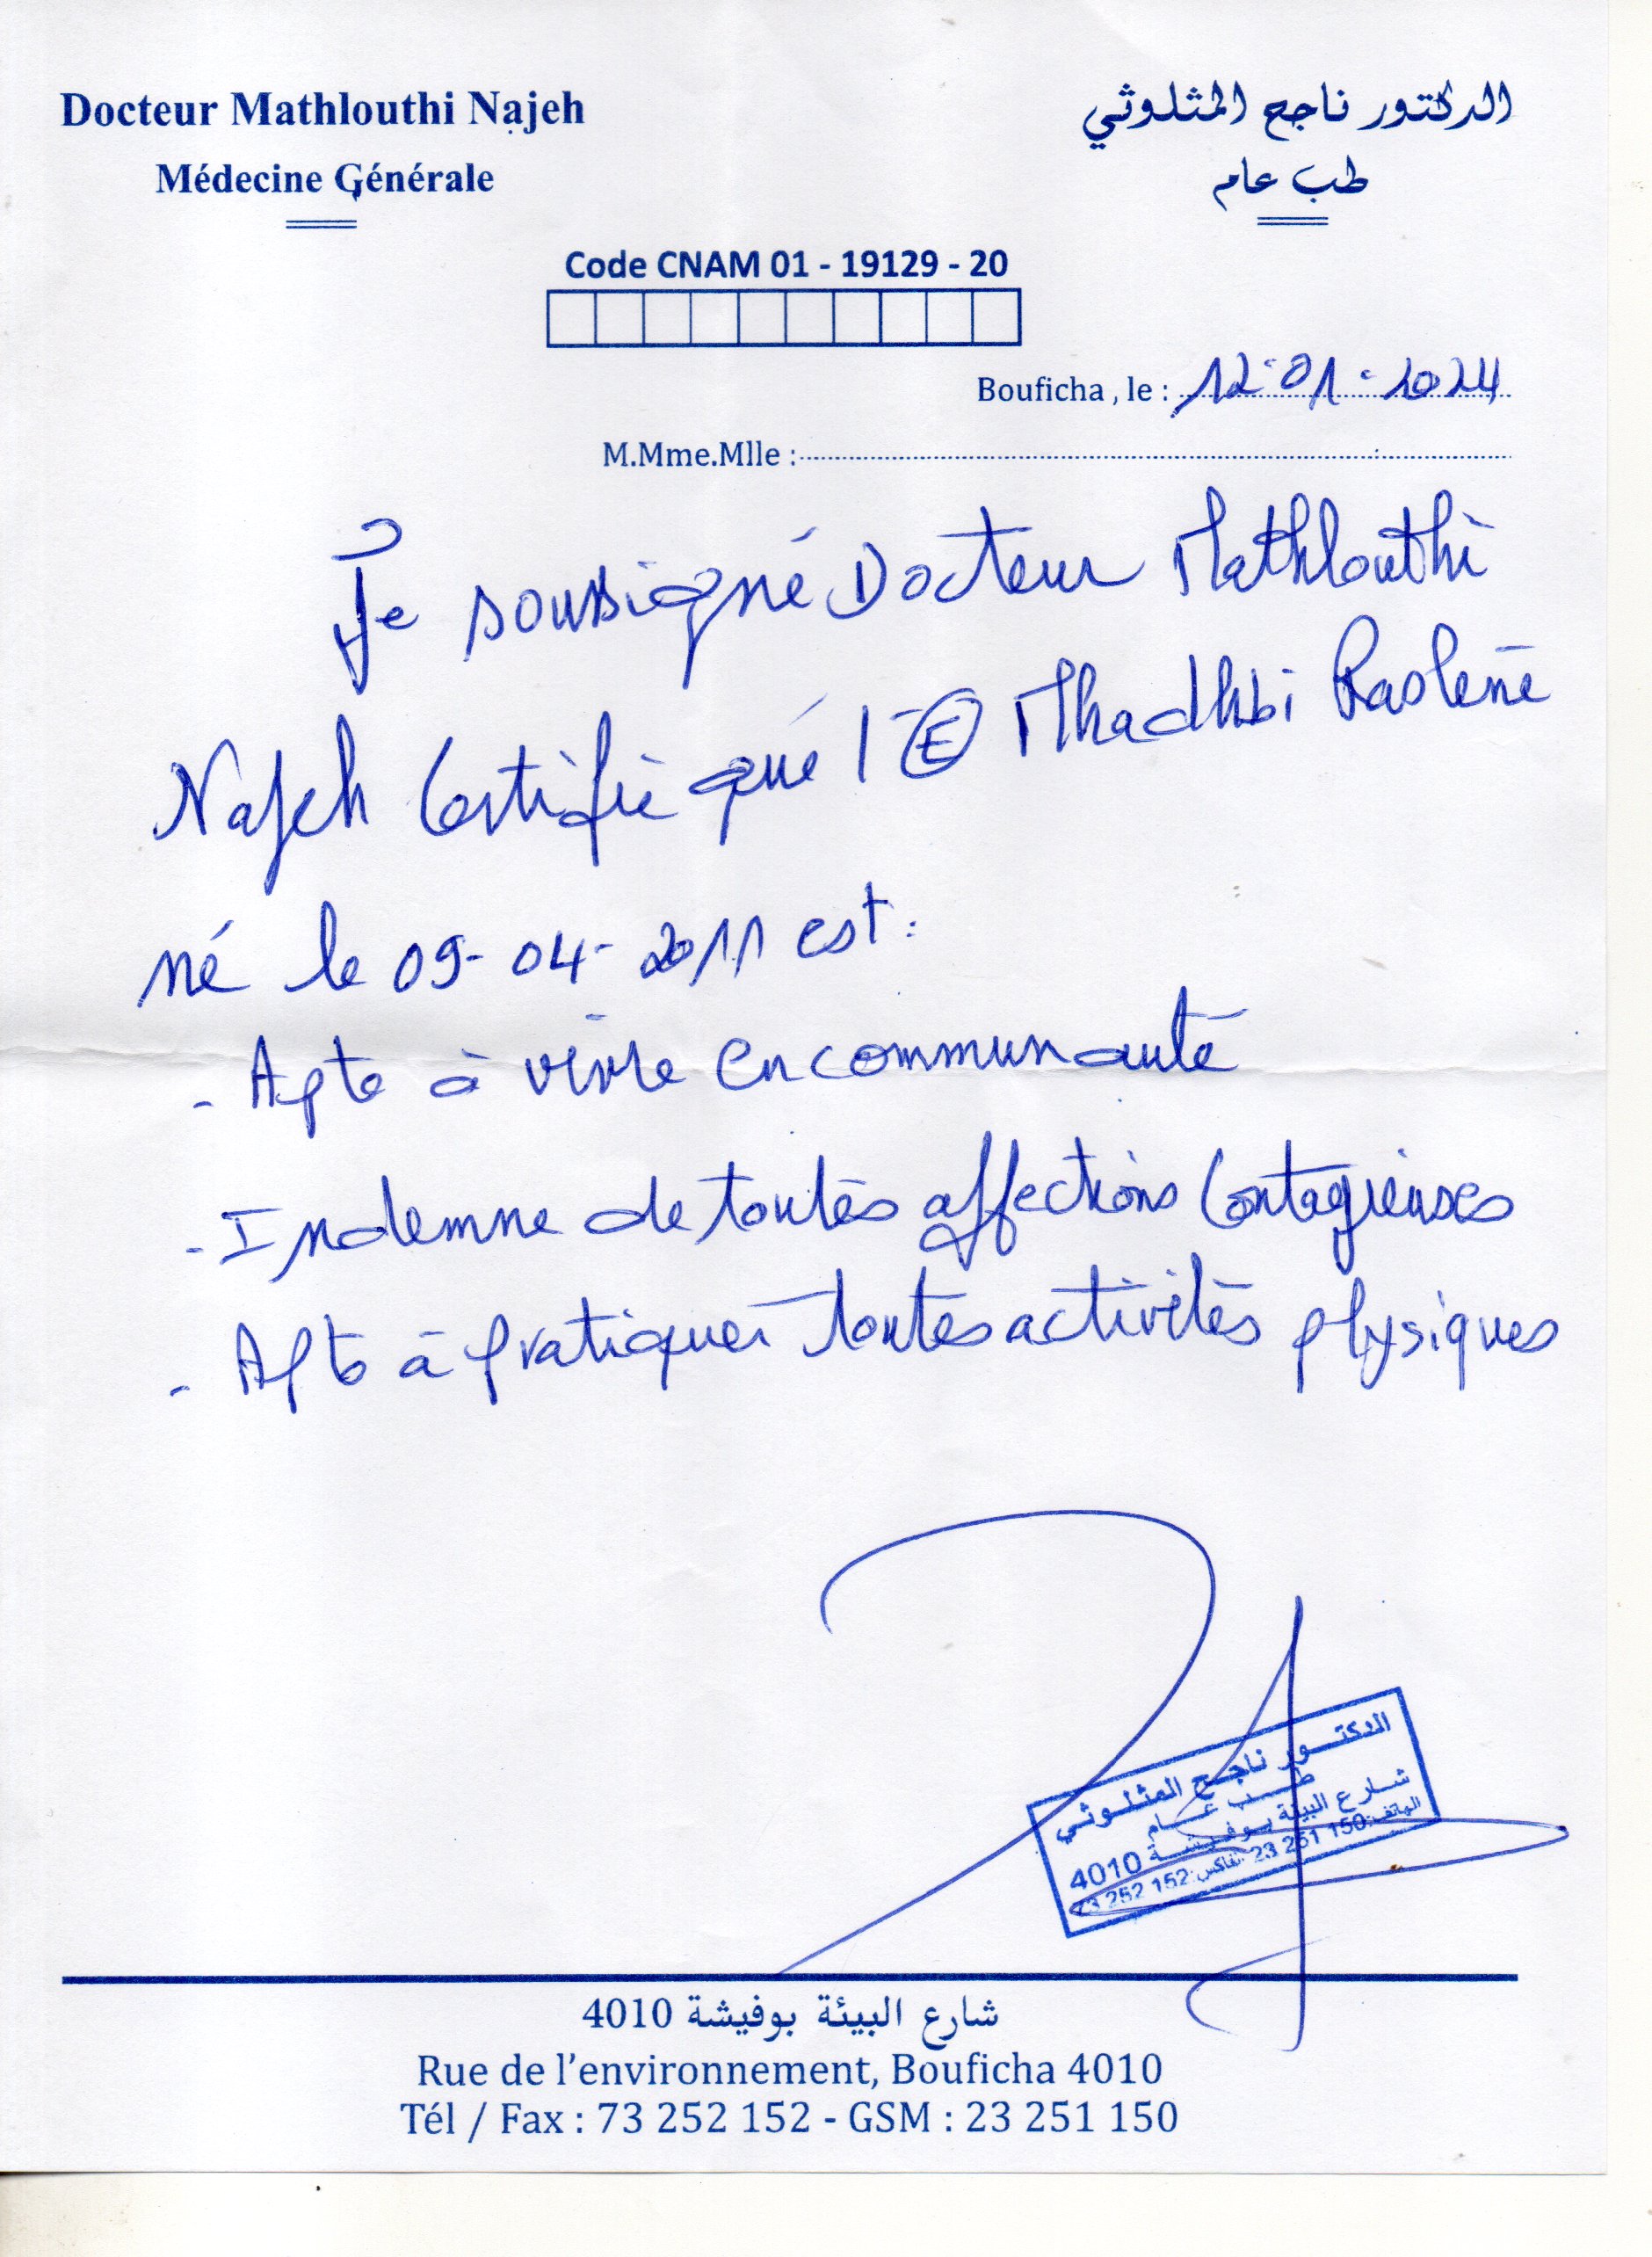 Docteur Mathlouthi Najeh
Médecine Générale
الدكتور ناجح المثلوثي
طب عام
Code CNAM 01 - 19129 - 20
Bouficha , le : 12.01.2024
M.Mme.Mlle :
Je soussigné Docteur Mathlouthi
Najeh Certifie que l'E Mhadhbi
né le 09-04-2011 est :
- Apte à vivre en communauté
- Indemne de toutes affections Contagieuses
- Apte à pratiquer toutes activités physiques
الدكتور ناجح المثلوثي
طب عام
شارع البيئة بوفيشة 4010
الهاتف: 150 251 23 الفاكس: 152 252 73
شارع البيئة بوفيشة 4010
Rue de l'environnement, Bouficha 4010
Tél / Fax : 73 252 152 - GSM : 23 251 150